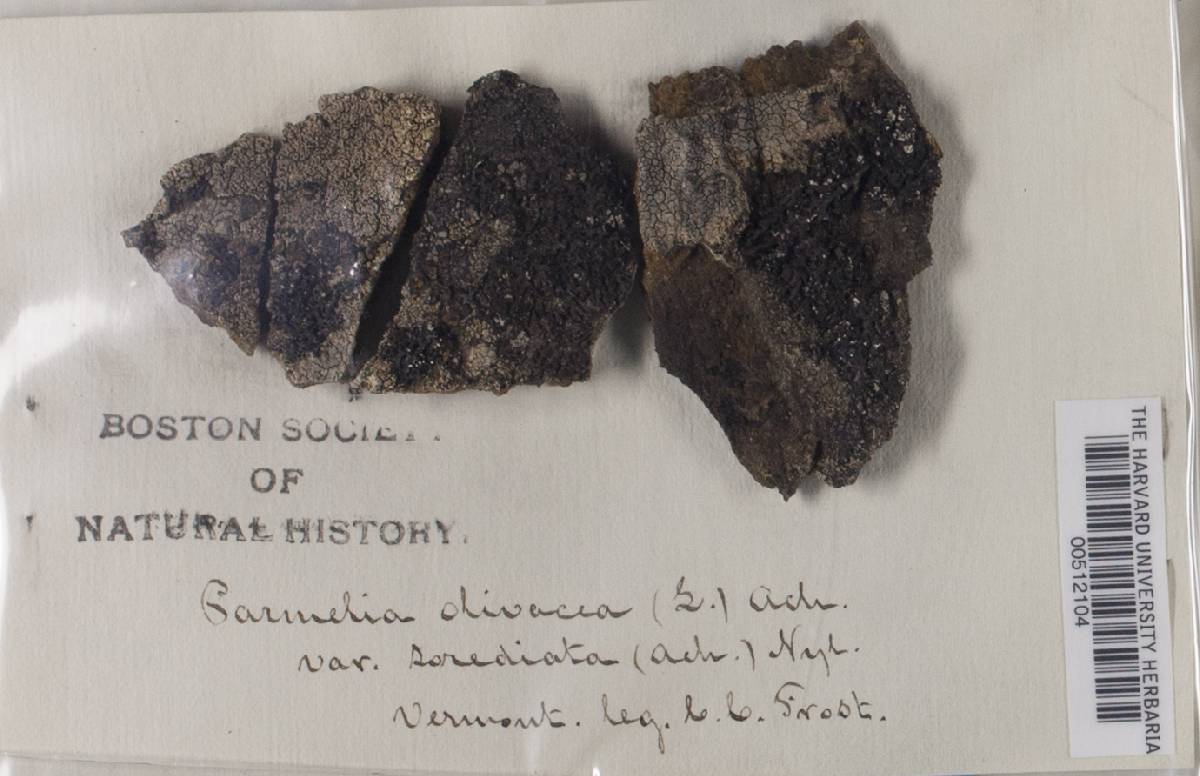 BOSTON SOCIETY
OF
NATURAL HISTORY.
Parmelia olivacea (L.) Ach.
var. sorediata (Ach.) Nyl.
Vermont. leg. C. C. Frost.
THE HARVARD UNIVERSITY HERBARIA
00512104